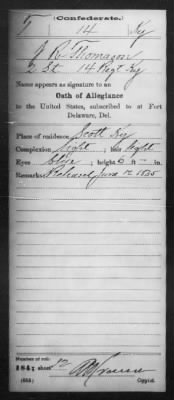 (Confederate.)
T 14 Ky
J. R. Thomason
2 Lt 14 Regt Ky
Name appears as signature to an
Oath of Allegiance
to the United States, subscribed to at Fort
Delaware, Del.
Place of residence Scott Ky
Complexion light ; hair light
Eyes blue ; height 6 ft. — in.
Remarks: Released June 12 1865
Number of roll:
sheet 12
(655) Copyist.